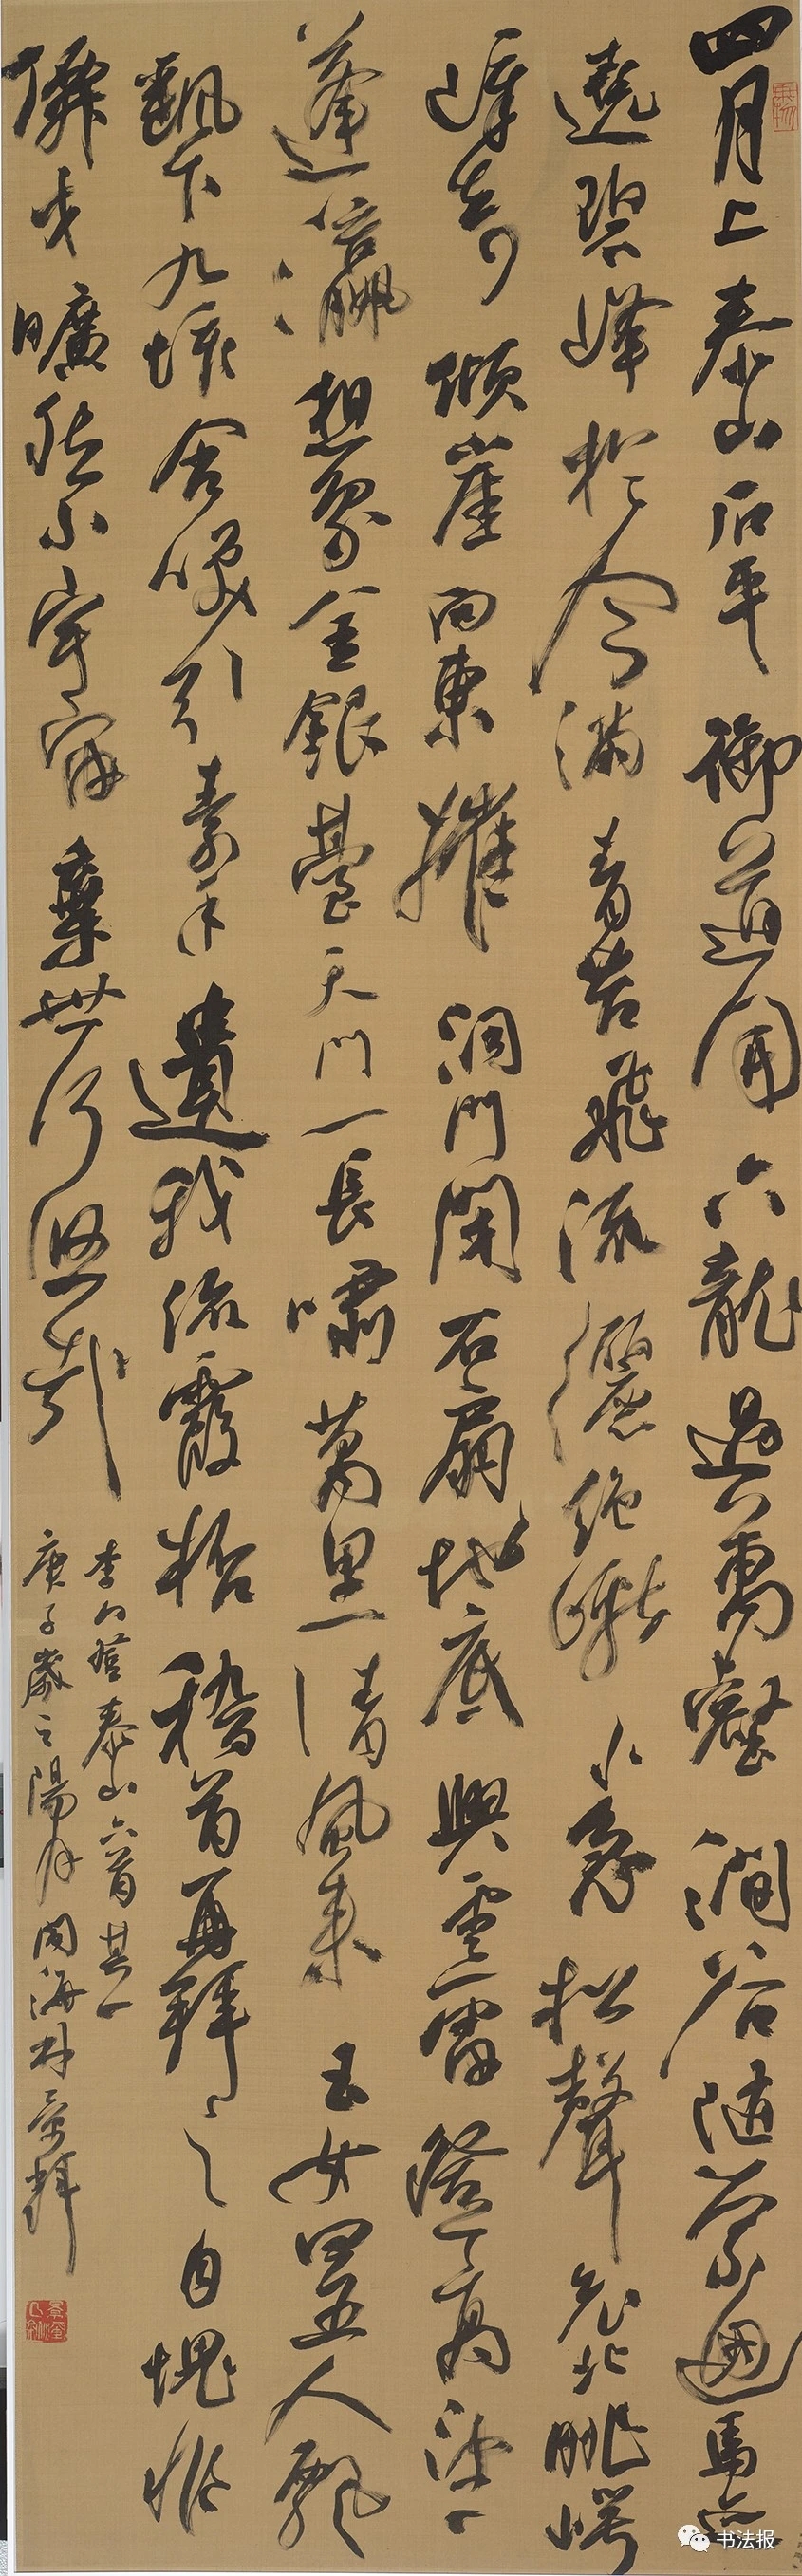 四月上泰山石平御道開六龍過萬壑澗谷隨縈迴馬跡
遶碧峰於今滿青苔飛流灑絕巘水急松聲哀北眺崿
嶂奇傾崖向東摧洞門閉石扇地底興雲雷登高望
蓬瀛想象金銀臺天門一長嘯萬里清風來玉女四五人飄
飄下九垓含笑引素手遺我流霞杯稽首再拜之自愧非
仙才曠然小宇宙棄世何悠哉
李白登泰山六首其一
庚子歲之陽月閩海林景輝
书法报